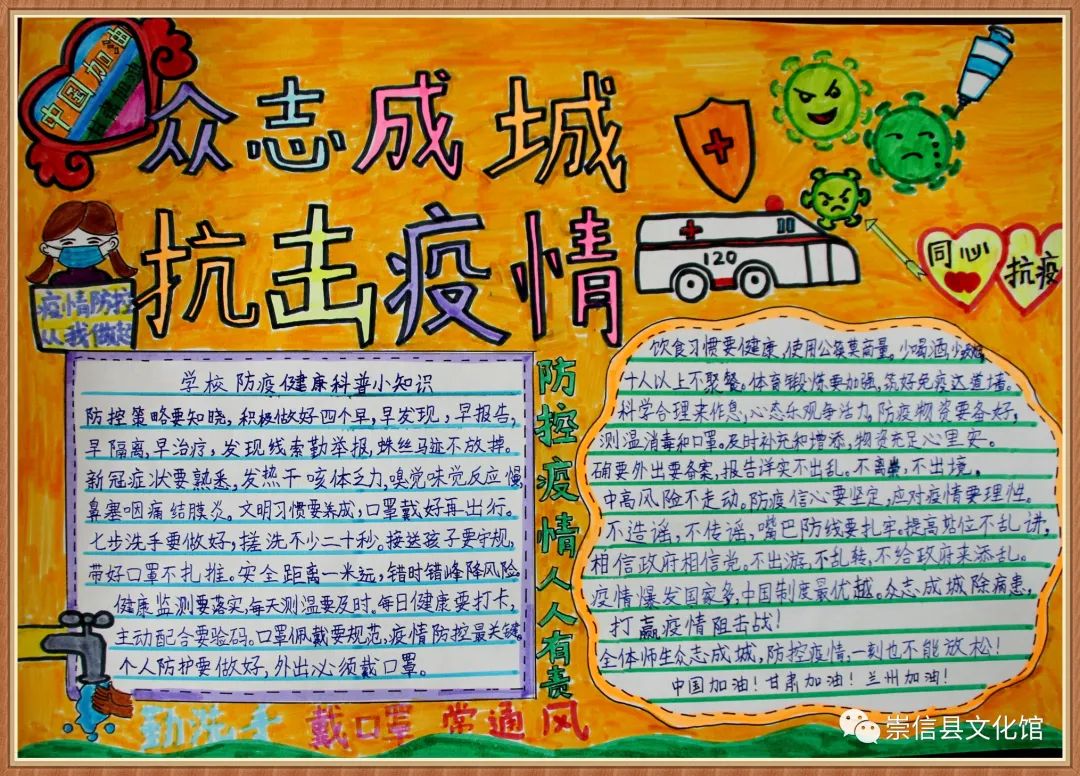 中国加油
众志成城
抗击疫情
120
同心
抗疫
疫情防控
从我做起
学校防疫健康科普小知识
防控策略要知晓,积极做好四个早,早发现,早报告,
早隔离,早治疗,发现线索勤举报,蛛丝马迹不放掉。
新冠症状要熟悉,发热干咳体乏力,嗅觉味觉反应慢,
鼻塞咽痛结膜炎。文明习惯要养成,口罩戴好再出行。
七步洗手要做好,搓洗不少二十秒。接送孩子要守规,
带好口罩不扎推。安全距离一米远,错时错峰降风险
健康监测要落实,每天测温要及时。每日健康要打卡,
主动配合要验码。口罩佩戴要规范,疫情防控最关键。
个人防护要做好,外出必须戴口罩。
防控疫情人人有责
饮食习惯要健康,使用公筷莫商量。少喝酒,少
十人以上不聚餐。体育锻炼要加强,筑好免疫这道墙。
科学合理来作息,心态乐观争活力,防疫物资要备好,
测温消毒和口罩。及时补充和增添,物资充足心里安。
确要外出要备案,报告详实不出乱。不离,不出境。
中高风险不走动。防疫信心要坚定,应对疫情要理性。
不造谣,不传谣,嘴巴防线要扎牢,提高站位不乱讲,
相信政府相信党。不出游,不乱转,不给政府来添乱。
疫情爆发国家多,中国制度最优越。众志成城除病患,
打赢疫情阻击战!
全体师生众志成城,防控疫情,一刻也不能放松!
中国加油!甘肃加油!兰州加油!
勤洗手 戴口罩 常通风
崇信县文化馆